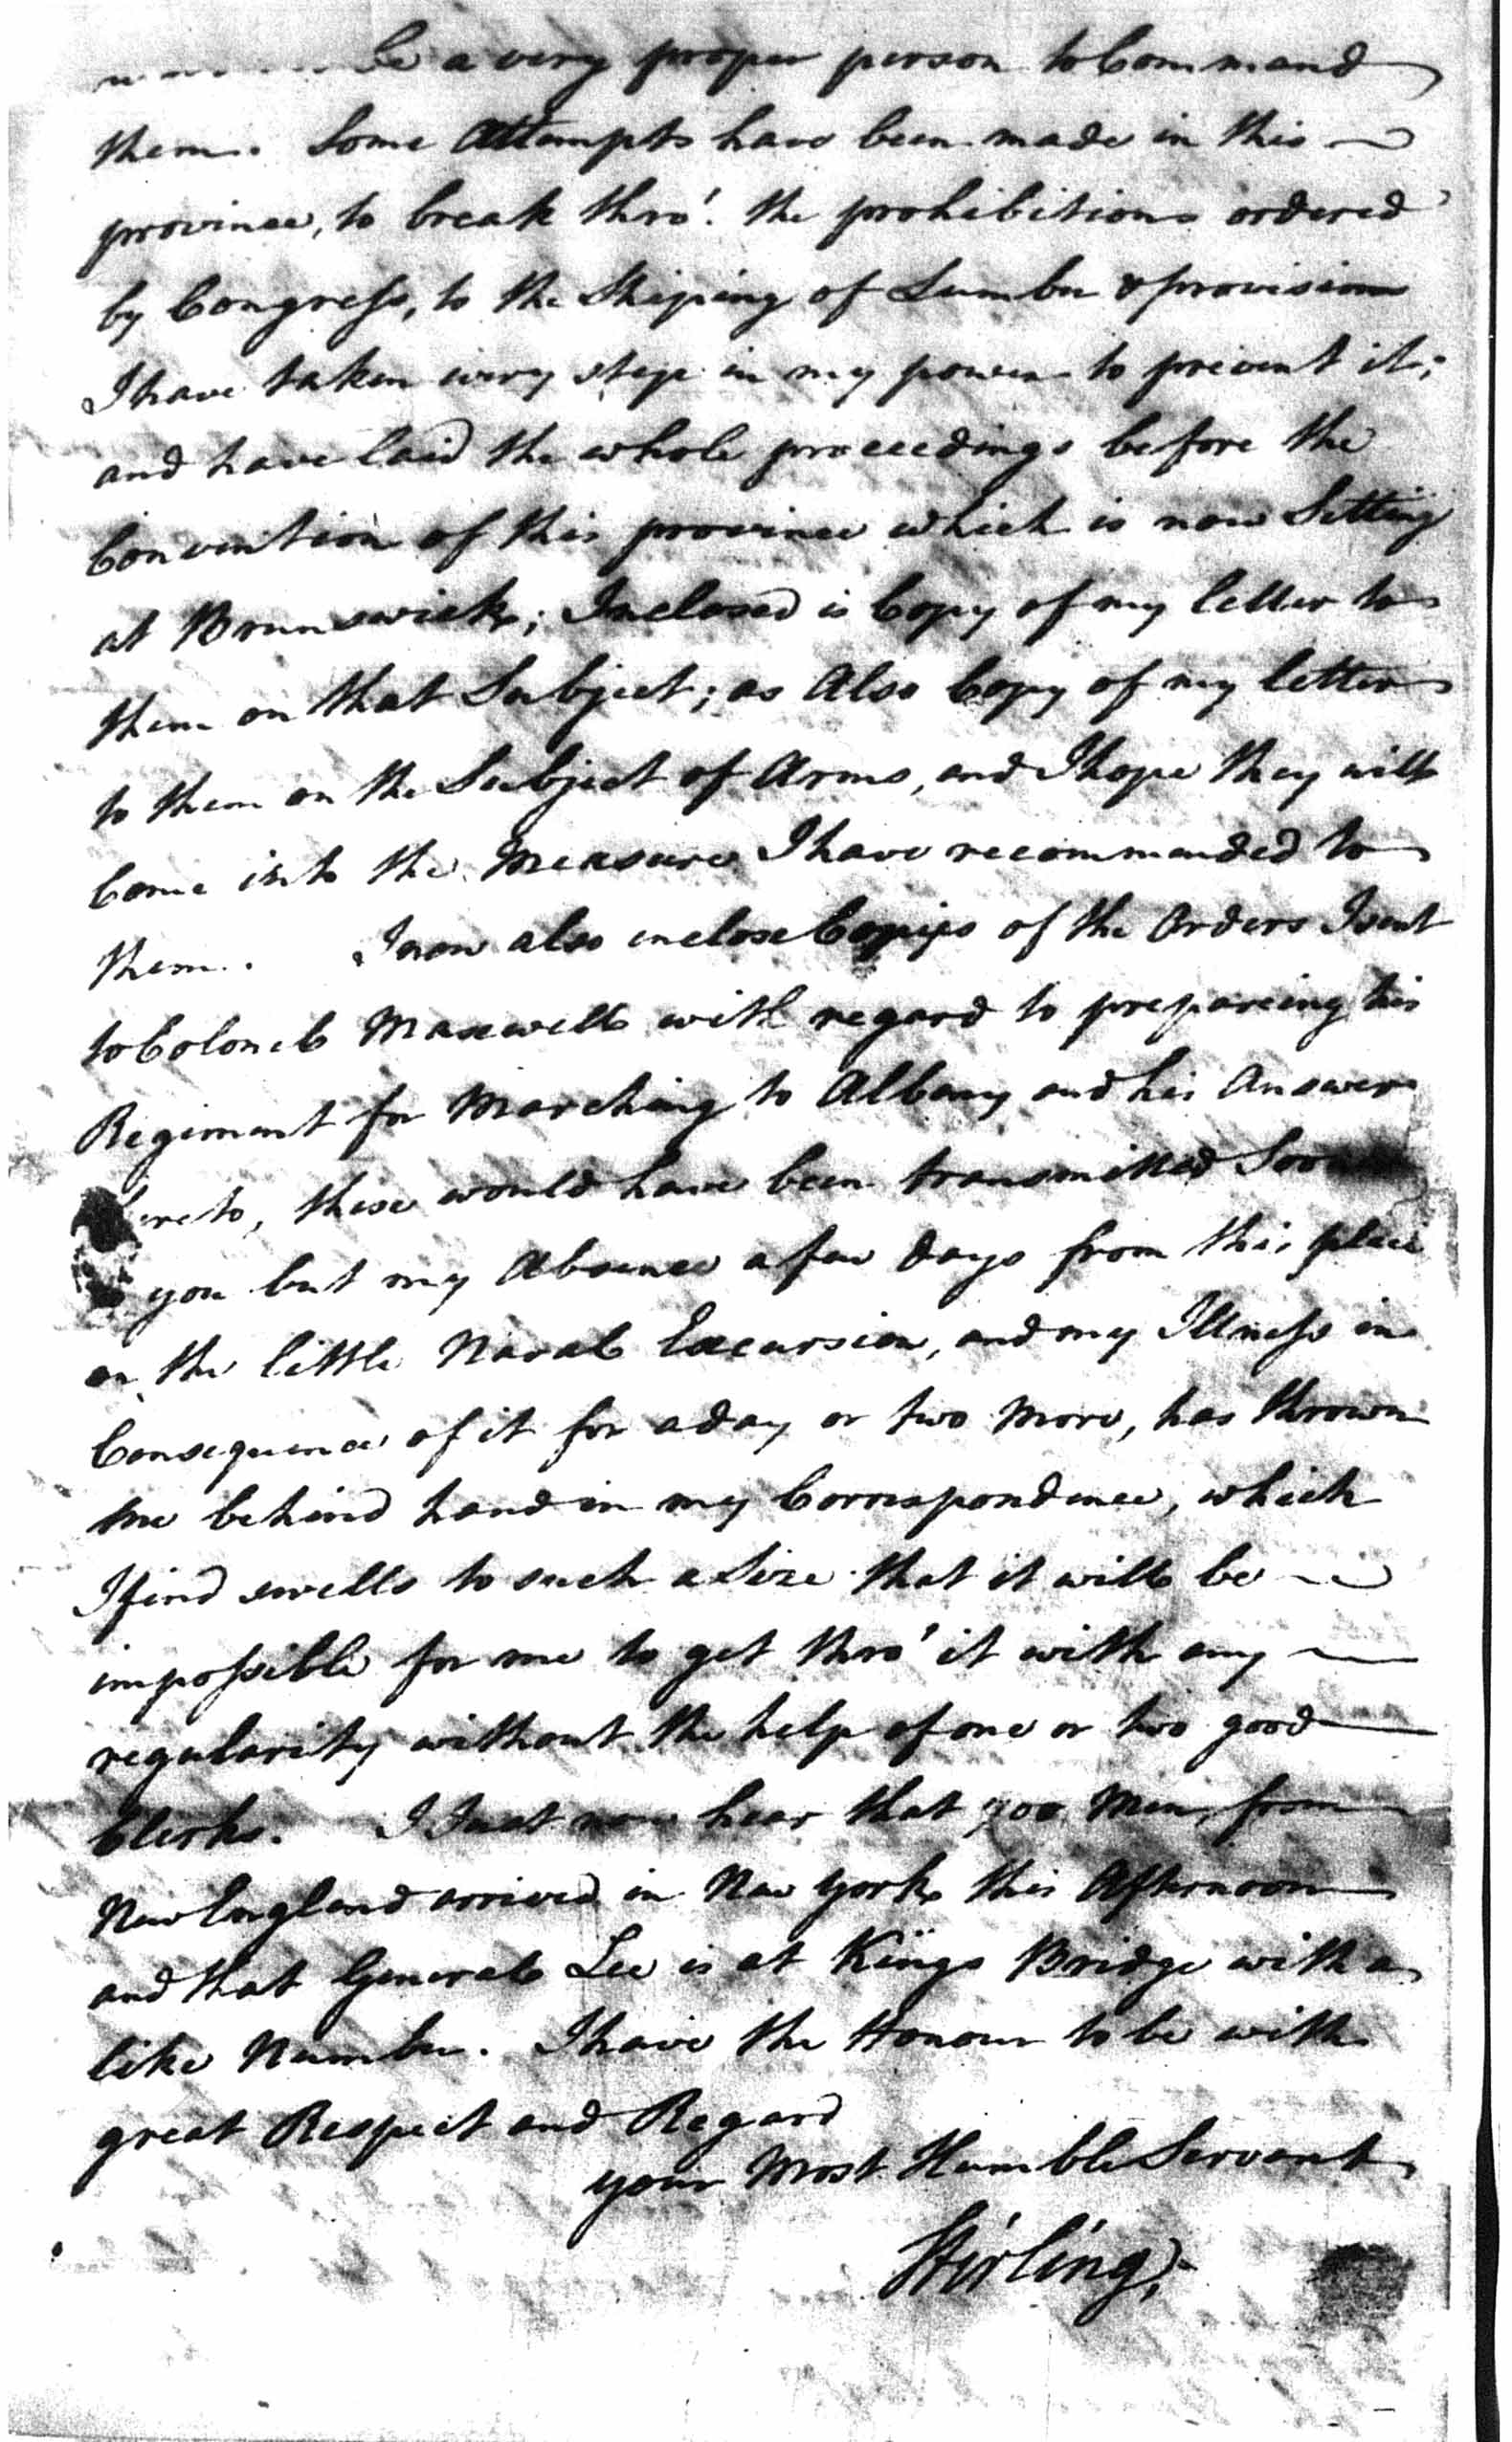 be a very proper person to Command
them. Some Attempts have been made in this —
province, to break thro'. the prohibitions ordered
by Congress, to the Shiping of Lumber & provisions
I have taken every step in my power to prevent it;
and have laid the whole proceedings before the
Convention of this province which is now Sitting
at Brunswick; Inclosed is Copy of my letter to
them on that Subject; as Also Copy of my letter
to them on the Subject of Arms, and I hope they will
Come into the Measure I have recommended to
them. I now also enclose Copies of the Orders I sent
to Colonel Maxwell with regard to prepareing his
Regiment for Marching to Albany and his Answer
these would have been transmitted
you but my Absence a few days from this place
on the little Naval Excursion, and my Illness in
Consequence of it for a day or two More, has thrown
me behind hand in my Correspondence, which
I find swells to such a Size that it will be —
impossible for me to get thro' it with any —
regularity without the help of one or two good —
Clerks. I Just now hear that 700 Men from
New England arrived in New york this Afternoon
and that General Lee is at Kings Bridge with a
like Number. I have the Honour to be with
great Respect and Regard
your Most Humble Servant
Stirling,